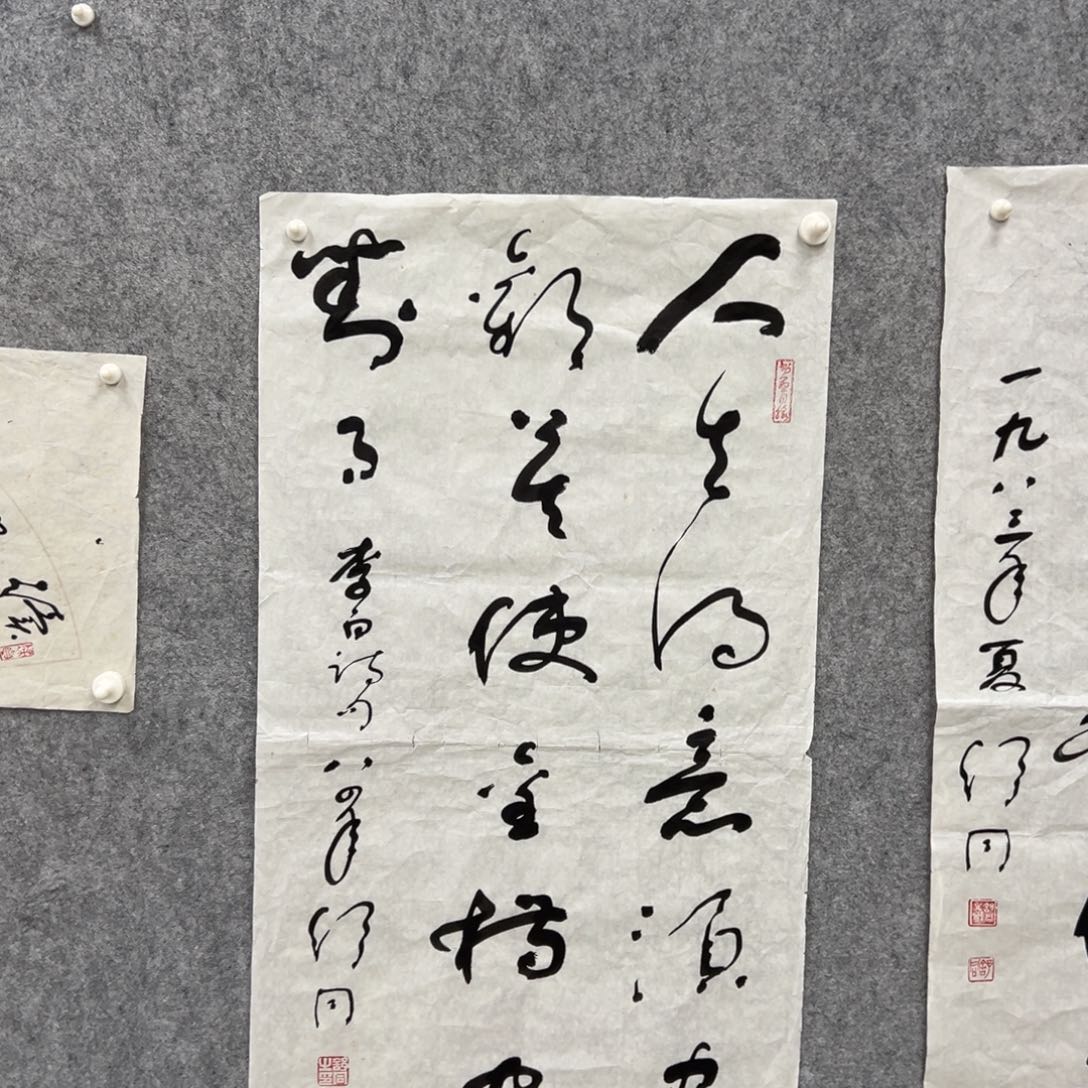 一九八三年夏 舒同
人生得意須
歡莫使金樽
對月 李白詩句 八四年 舒同
舒同之印